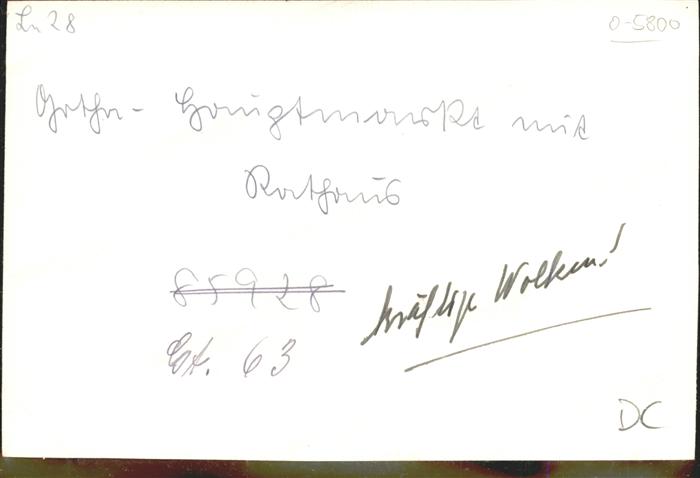 Ln 28
0-5800
Gotha - Hauptmarkt mit
Rathaus
85928
kräftige Wolken!
Et. 63
DC